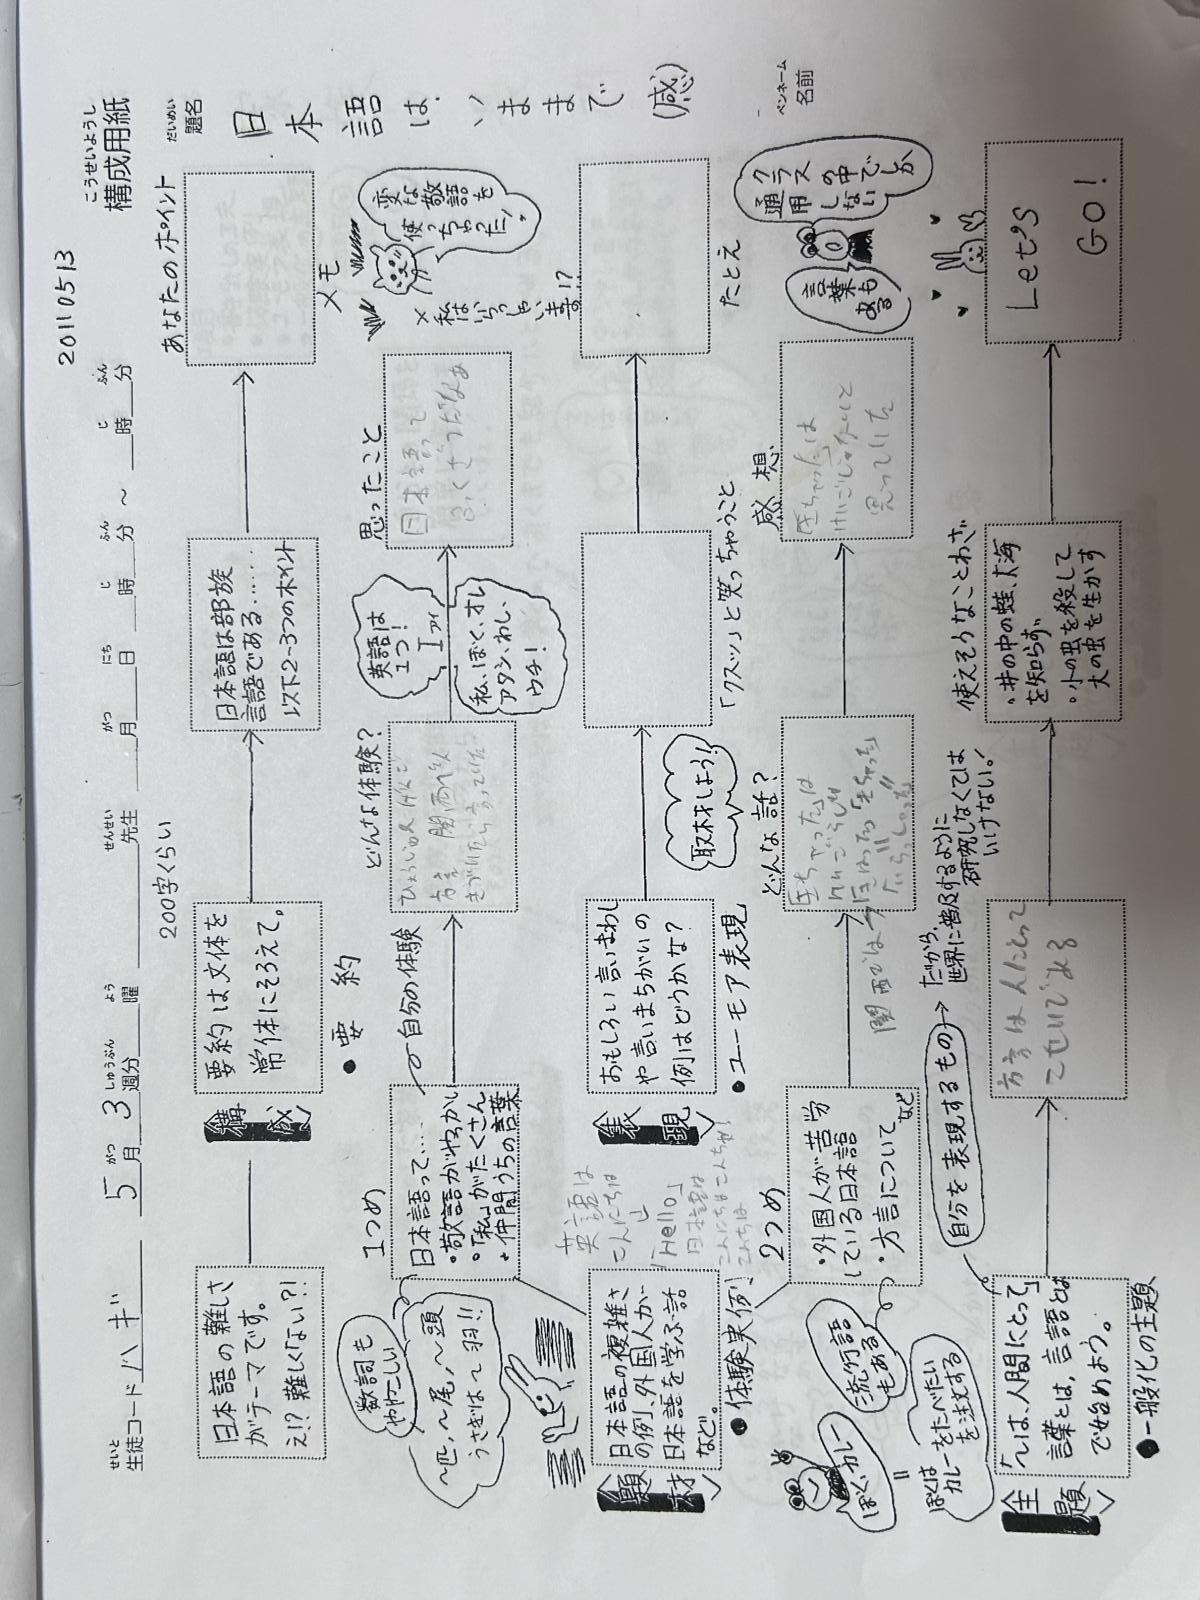 20110513
こうせいようし
構成用紙
せいと
生徒コード ハギ 5月3週分 曜 先生 月 日 時 分 ～ 時 分
がつ しゅうぶん よう せんせい がつ にち じ ふん じ ふん
だいめい
題名
日本語は、いままで (感)
ペンネーム
名前
200字くらい
あなたのポイント
日本語の難しさ
がテーマです。
え!?難しくない?!
構成
要約は文体を
常体にそろえて。
日本語は部族
言語である……
以下2~3つのポイント
●要約
メモ
数詞も
ややこしい
~匹、~尾、~頭
うさぎは~羽!!
1つめ
日本語って…
・敬語がやっかい
・「私」がたくさん
・仲間うちの言葉
自分の体験
どんな体験?
方言 関西
英語は
1つ!
I アイ
私、ぼく、オレ
アタシ、わし、
ウチ!
思ったこと
日本語って
ふくざつだなぁ
変な敬語を
使っちゃった!
×私はいらっしゃいます!?
題材
日本語の複雑さ
の例、外国人が
日本語を学ぶ話
など。
●体験実例
英語は
こんにちは
「Hello」
日本語は
表現
おもしろい言いまわし
や言いまちがいの
例はどうかな?
●ユーモア表現
取材しよう!
「クスッ」と笑っちゃうこと
たとえ
ぼく、カレー
=
ぼくは
カレーをたべたい
を注文する
流行語
もある
2つめ
・外国人が苦労
している日本語
・方言について
など
どんな話?
関西では
感想
思っていた
言葉も
ある
クラスの中でしか
通用しない
主題
「~は、人間にとって」
言葉とは、言語とは
で始めよう。
●一般化の主題
自分を表現するもの
→だから、
世界に普及するように
研究しなくては
いけない!
方言は人にとって
こせいである
使えそうなことわざ
・井の中の蛙、大海
を知らず
・小の虫を殺して
大の虫を生かす
Let's
GO!